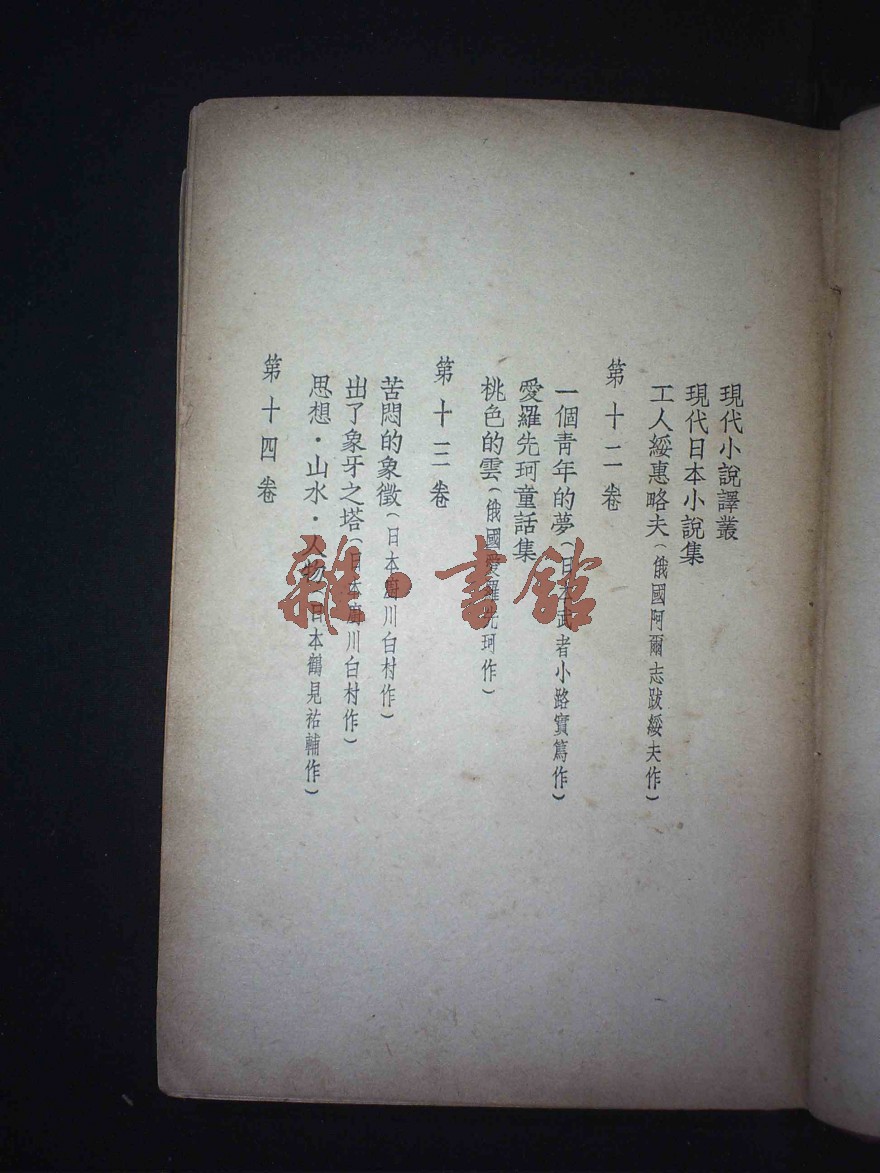 現代小說譯叢
現代日本小說集
工人綏惠略夫（俄國阿爾志跋綏夫作）
第十二卷
一個青年的夢（日本武者小路實篤作）
愛羅先珂童話集
桃色的雲（俄國愛羅先珂作）
第十三卷
苦悶的象徵（日本廚川白村作）
出了象牙之塔（日本廚川白村作）
思想・山水・人物（日本鶴見祐輔作）
第十四卷
雜・書館